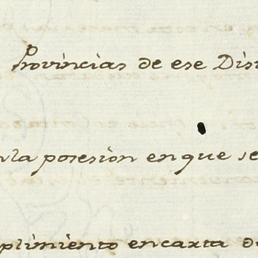 Provincias de ese Dis
la posesion en que se
plimiento en carta d